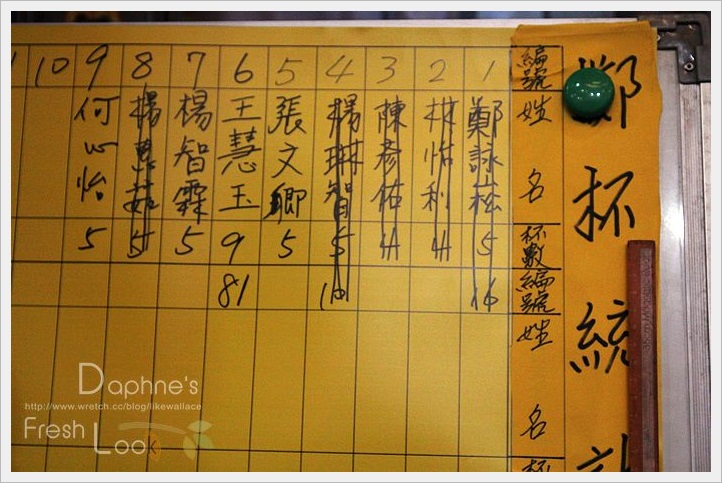 杯統
編號 姓 名 杯數 編號 姓 名 杯
1 鄭詠菘 5 16
2 林怡利 4
3 陳彥佑 4
4 楊琳智 5
5 張文卿 5
6 王慧玉 9 81
7 楊智霖 5
8 楊惠茹 5
9 何心怡 5
10
Daphne's
http://www.wretch.cc/blog/likewallace
Fresh Look